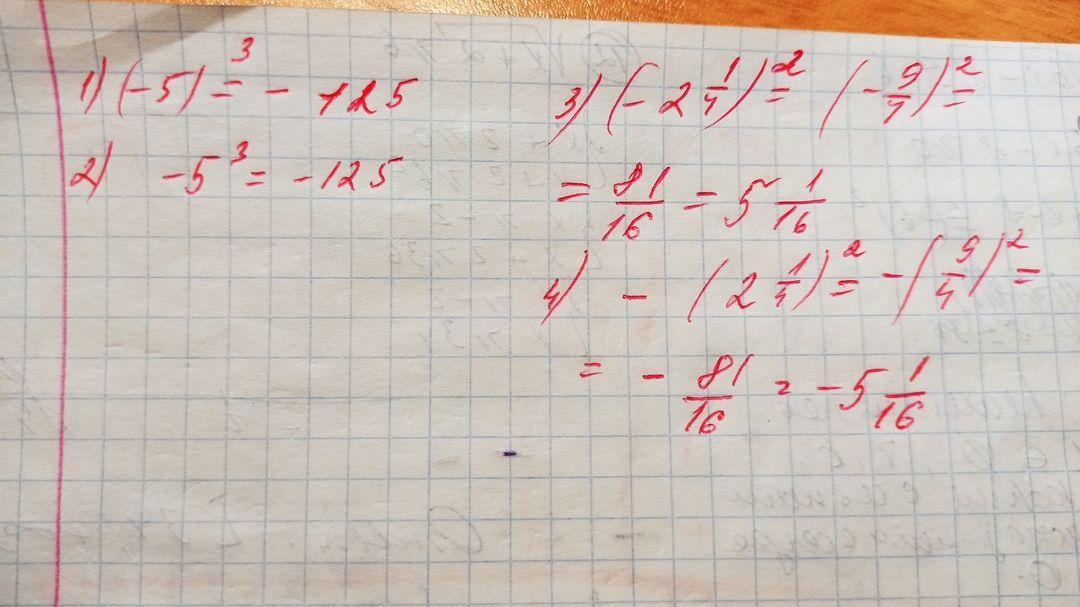 1) (-5)³ = - 125
2) -5³ = -125
3) (- 2 1/4)² = (- 9/4)² =
= 81/16 = 5 1/16
4) - (2 1/4)² = -(9/4)² =
= - 81/16 = -5 1/16